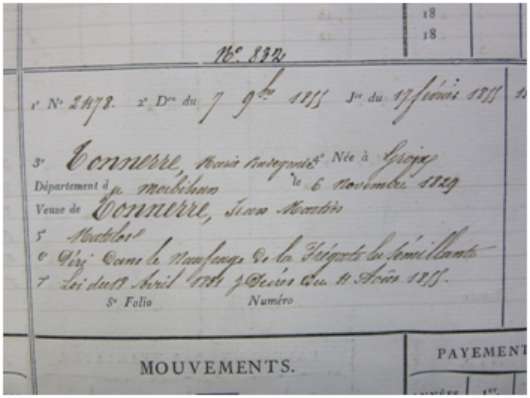 18
18
N° 832
1° N° 2478. 2° D° du 7 9bre 1855 Jce du 17 février 1855
3° Tonnerre, Marie Radegonde 4° Née à Groix
Département du Morbihan le 6 Novembre 1829
Veuve de Tonnerre, Jean
5 Matelot
6 Péri dans le Naufrage de la Frégate la Sémillante
7 Loi du 18 Avril 1831 Décret du 11 Août 1855.
8° Folio Numéro
MOUVEMENTS.
PAYEMENT
ANNÉES 1er